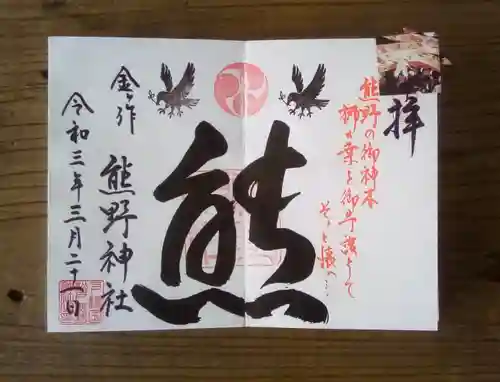 奉拝
熊野の御神木
梛の葉を御守護として
そっと懐へ…
熊
金ヶ作 熊野神社
令和三年三月二十一日